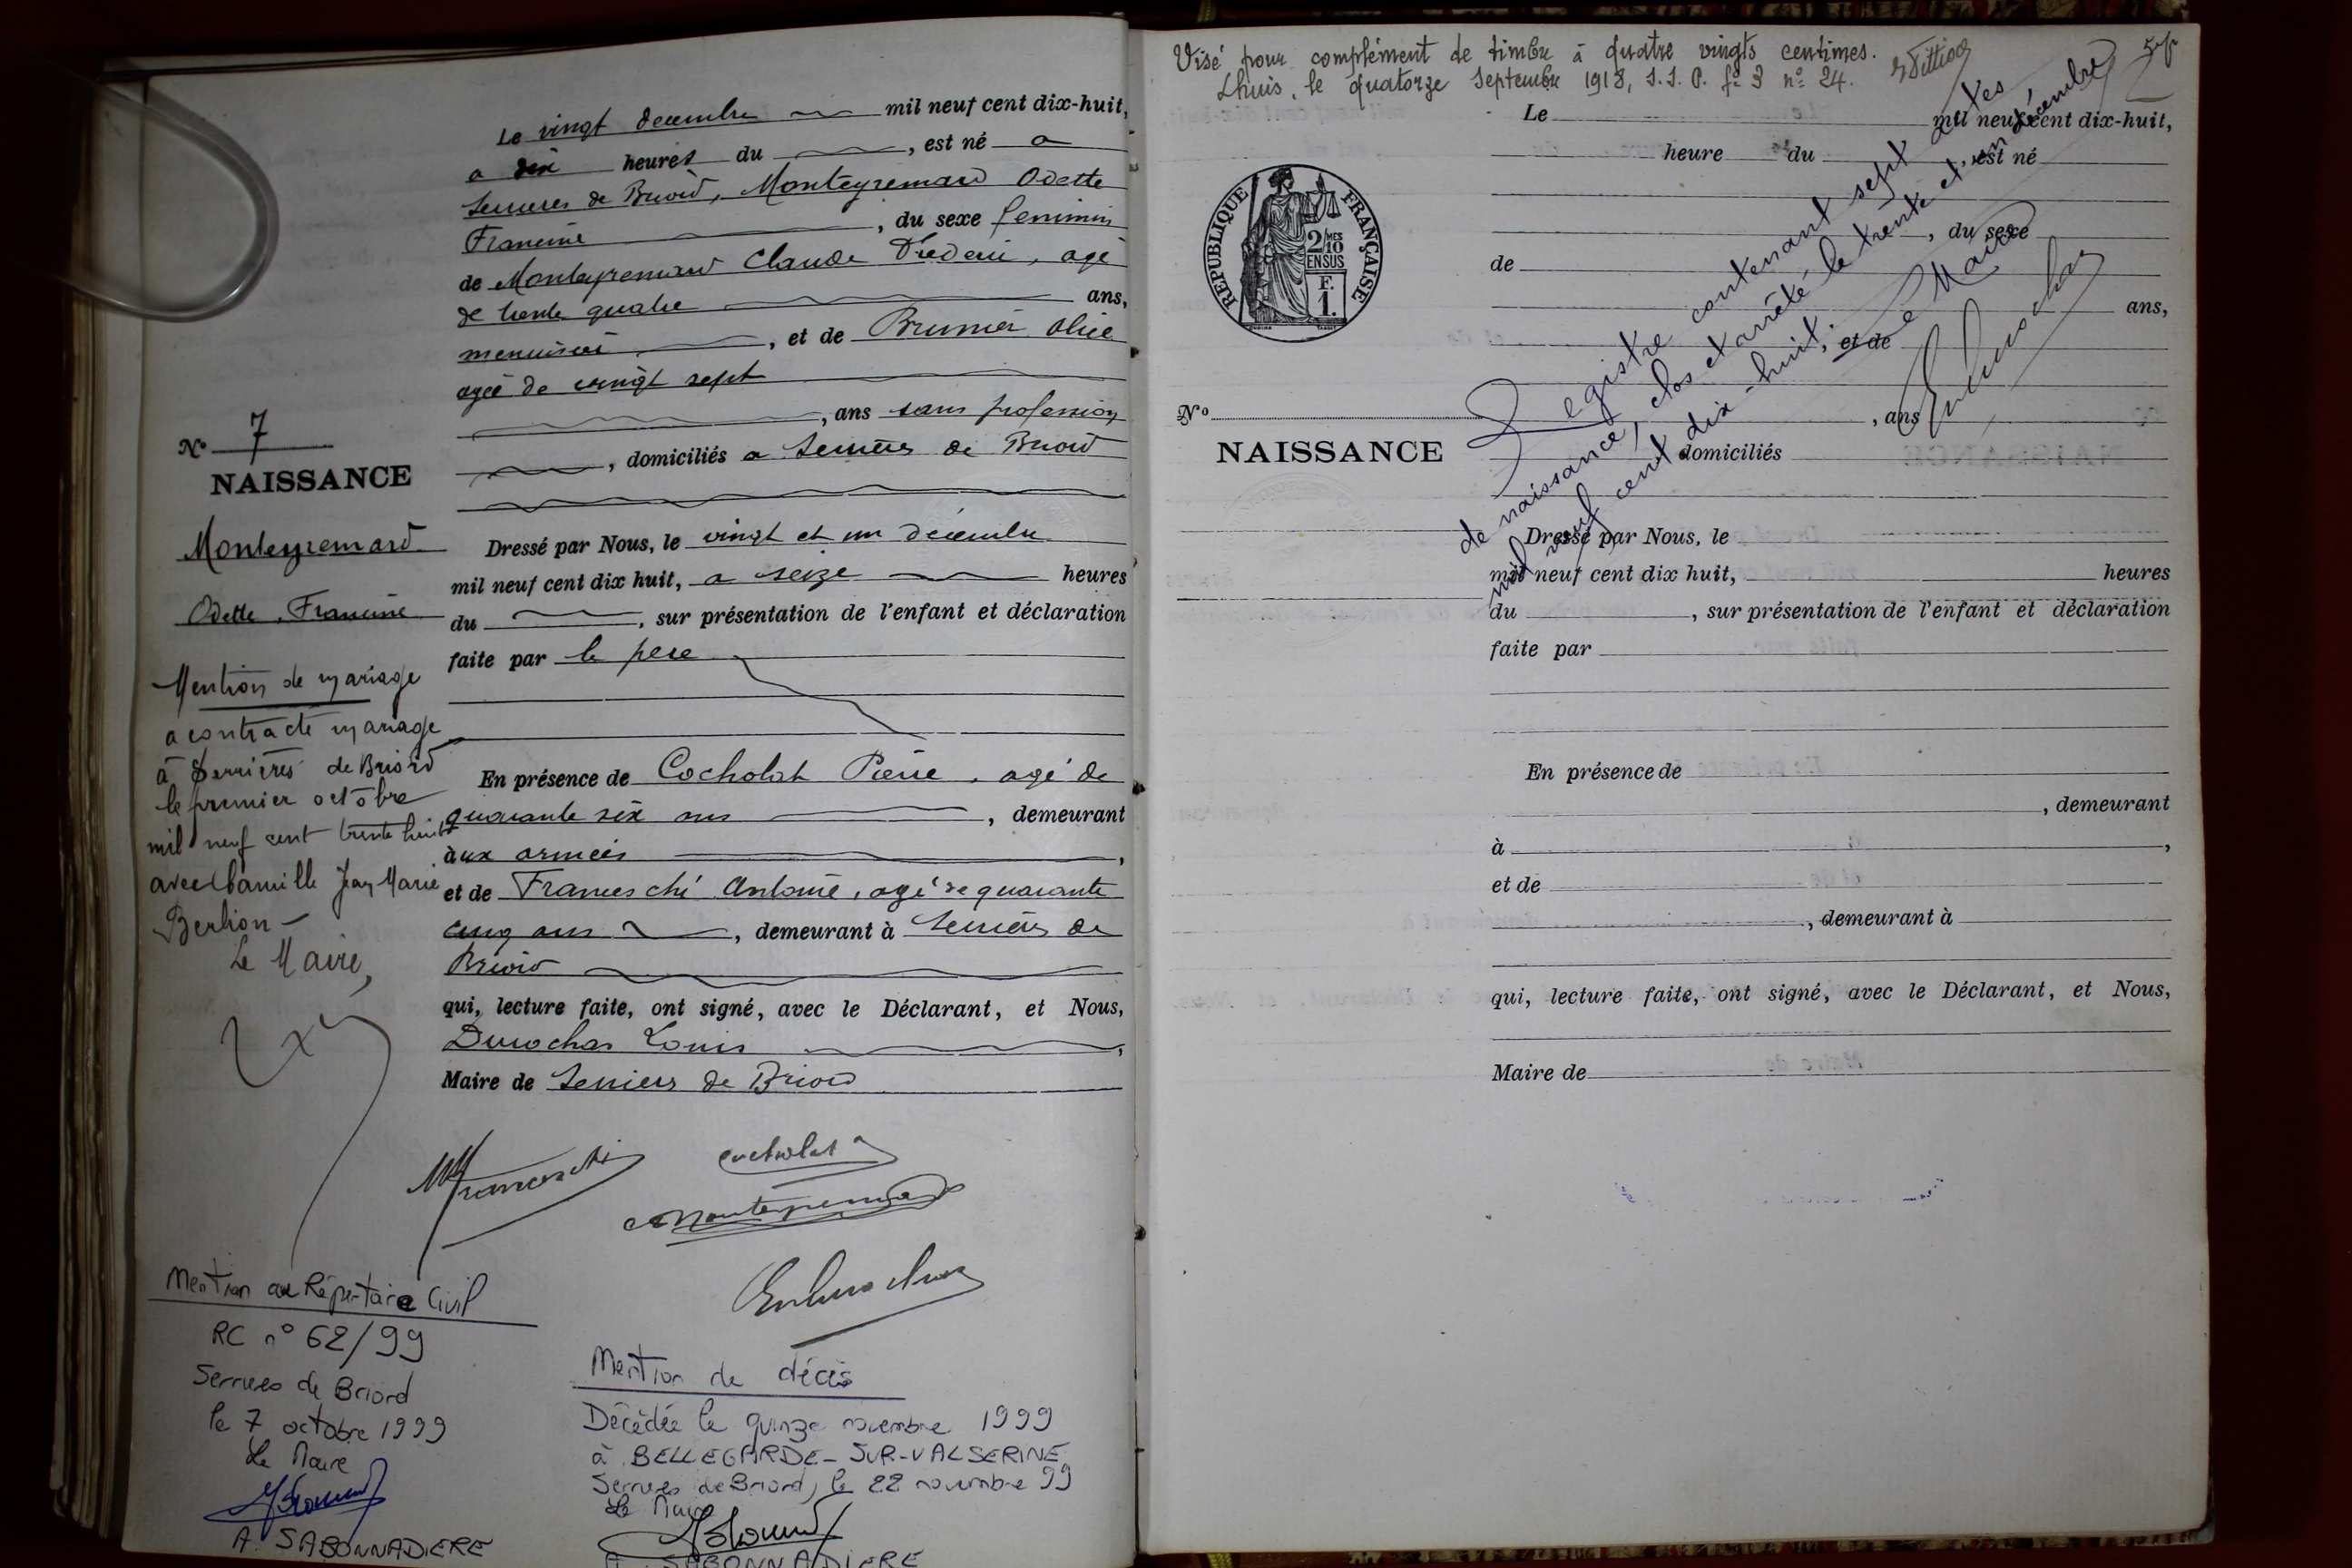 Le vingt decembre mil neuf cent dix-huit,
a dix heures du , est né a
Serrieres de Briord, Monteyremard Odette
Francine , du sexe feminin
de Monteyremard Claude Fréderic, agé
de trente quatre ans,
menuisier , et de Brunier Alice
agée de vingt sept
, ans sans profession
, domiciliés a Serrieres de Briord
N° 7
NAISSANCE
Monteyremard
Odette Francine
Dressé par Nous, le vingt et un décembre
mil neuf cent dix huit, a seize heures
du , sur présentation de l'enfant et déclaration
faite par le pere
En présence de Cocholat Pierre, agé de
quarante six ans , demeurant
àux armées ,
et de Franceschi Antoine, agé de quarante
cinq ans , demeurant à Serrieres de
Briord
qui, lecture faite, ont signé, avec le Déclarant, et Nous,
Durochas Louis ,
Maire de Serrieres de Briord
Mention de mariage
a contracté mariage
à Serrières de Briord
le premier octobre
mil neuf cent trente huit
avec Camille Jean Marie
Berlion -
Le Maire,
Franceschi
Cocholat
Monteyremard
Durochas
Mention au Répertoire Civil
RC n° 62/99
Serrieres de Briord
le 7 octobre 1999
Le Maire
A. SABONNADIERE
Mention de décès
Décédée le quinze novembre 1999
à BELLEGARDE-SUR-VALSERINE
Serrieres de Briord, le 22 novembre 99
Le Maire
A. SABONNADIERE
Visé pour complément de timbre à quatre vingts centimes.
Lhuis, le quatorze Septembre 1918, S.S.P. f° 3 n° 24.
RÉPUBLIQUE FRANÇAISE
2/10 MES
EN SUS
F.
1.
Le mil neuf cent dix-huit,
heure du , est né
, du sexe
de
ans,
, et de
N°
, ans
NAISSANCE
domiciliés
Dressé par Nous, le
mil neuf cent dix huit, heures
du , sur présentation de l'enfant et déclaration
faite par
En présence de
, demeurant
à ,
et de
, demeurant à
qui, lecture faite, ont signé, avec le Déclarant, et Nous,
Maire de
Registre contenant sept actes
de naissance, clos et arrêté le trente et un décembre
mil neuf cent dix-huit.
Le Maire
Durochas